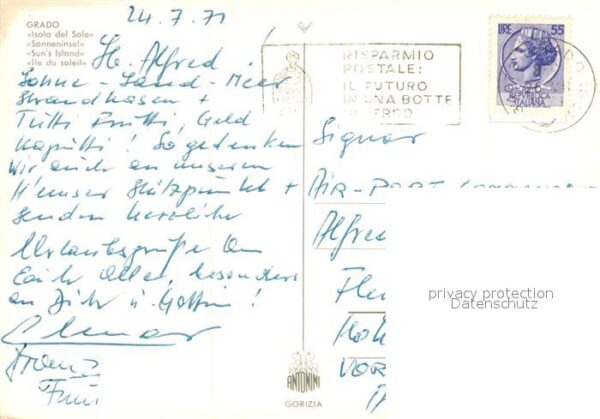 24.7.71
GRADO
«Isola del Sole»
«Sonneninsel»
«Sun's Island»
«Ile du soleil»
Alfred!
Sonne - Sand - Meer
Strandhasen +
Tutti Frutti, Geld
Kaputti! So gedenken
wir auch an unseren
Stützpunkt +
senden herzliche
Urlaubsgrüße an
Euch alle, besonders
an Dich u. Gattin!
RISPARMIO
POSTALE:
IL FUTURO
IN UNA BOTTE
LIRE 55
REPUBBLICA
ITALIANA
Signor
AIR-PORT
Alfred
privacy protection
Datenschutz
VOR
ANTONINI
GORIZIA